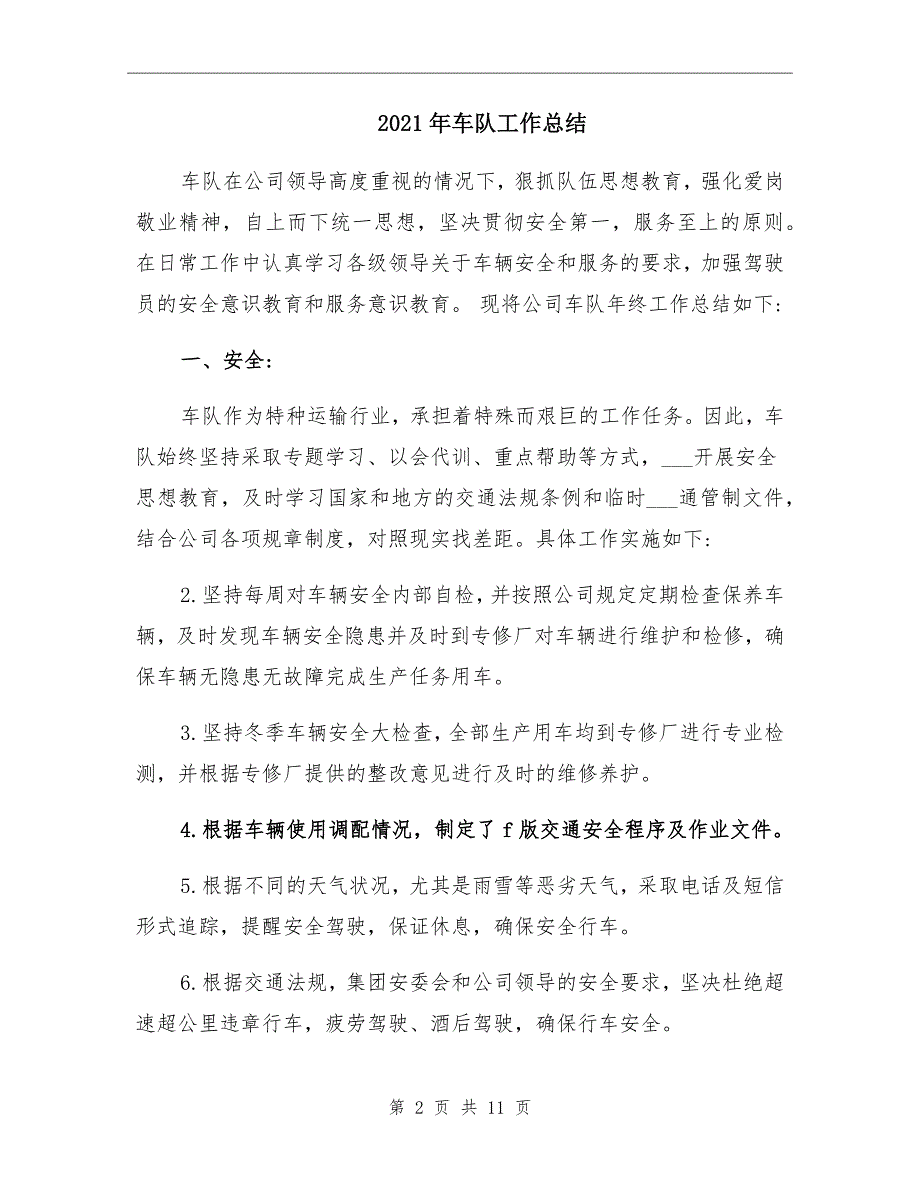 2021年车队工作总结
车队在公司领导高度重视的情况下，狠抓队伍思想教育，强化爱岗
敬业精神，自上而下统一思想，坚决贯彻安全第一，服务至上的原则。
在日常工作中认真学习各级领导关于车辆安全和服务的要求，加强驾驶
员的安全意识教育和服务意识教育。 现将公司车队年终工作总结如下：
一、安全：
车队作为特种运输行业，承担着特殊而艰巨的工作任务。因此，车
队始终坚持采取专题学习、以会代训、重点帮助等方式，___开展安全
思想教育，及时学习国家和地方的交通法规条例和临时___通管制文件，
结合公司各项规章制度，对照现实找差距。具体工作实施如下：
2.坚持每周对车辆安全内部自检，并按照公司规定定期检查保养车
辆，及时发现车辆安全隐患并及时到专修厂对车辆进行维护和检修，确
保车辆无隐患无故障完成生产任务用车。
3.坚持冬季车辆安全大检查，全部生产用车均到专修厂进行专业检
测，并根据专修厂提供的整改意见进行及时的维修养护。
4.根据车辆使用调配情况，制定了 f 版交通安全程序及作业文件。
5.根据不同的天气状况，尤其是雨雪等恶劣天气，采取电话及短信
形式追踪，提醒安全驾驶，保证休息，确保安全行车。
6.根据交通法规，集团安委会和公司领导的安全要求，坚决杜绝超
速超公里违章行车，疲劳驾驶、酒后驾驶，确保行车安全。
第 2 页 共 11 页